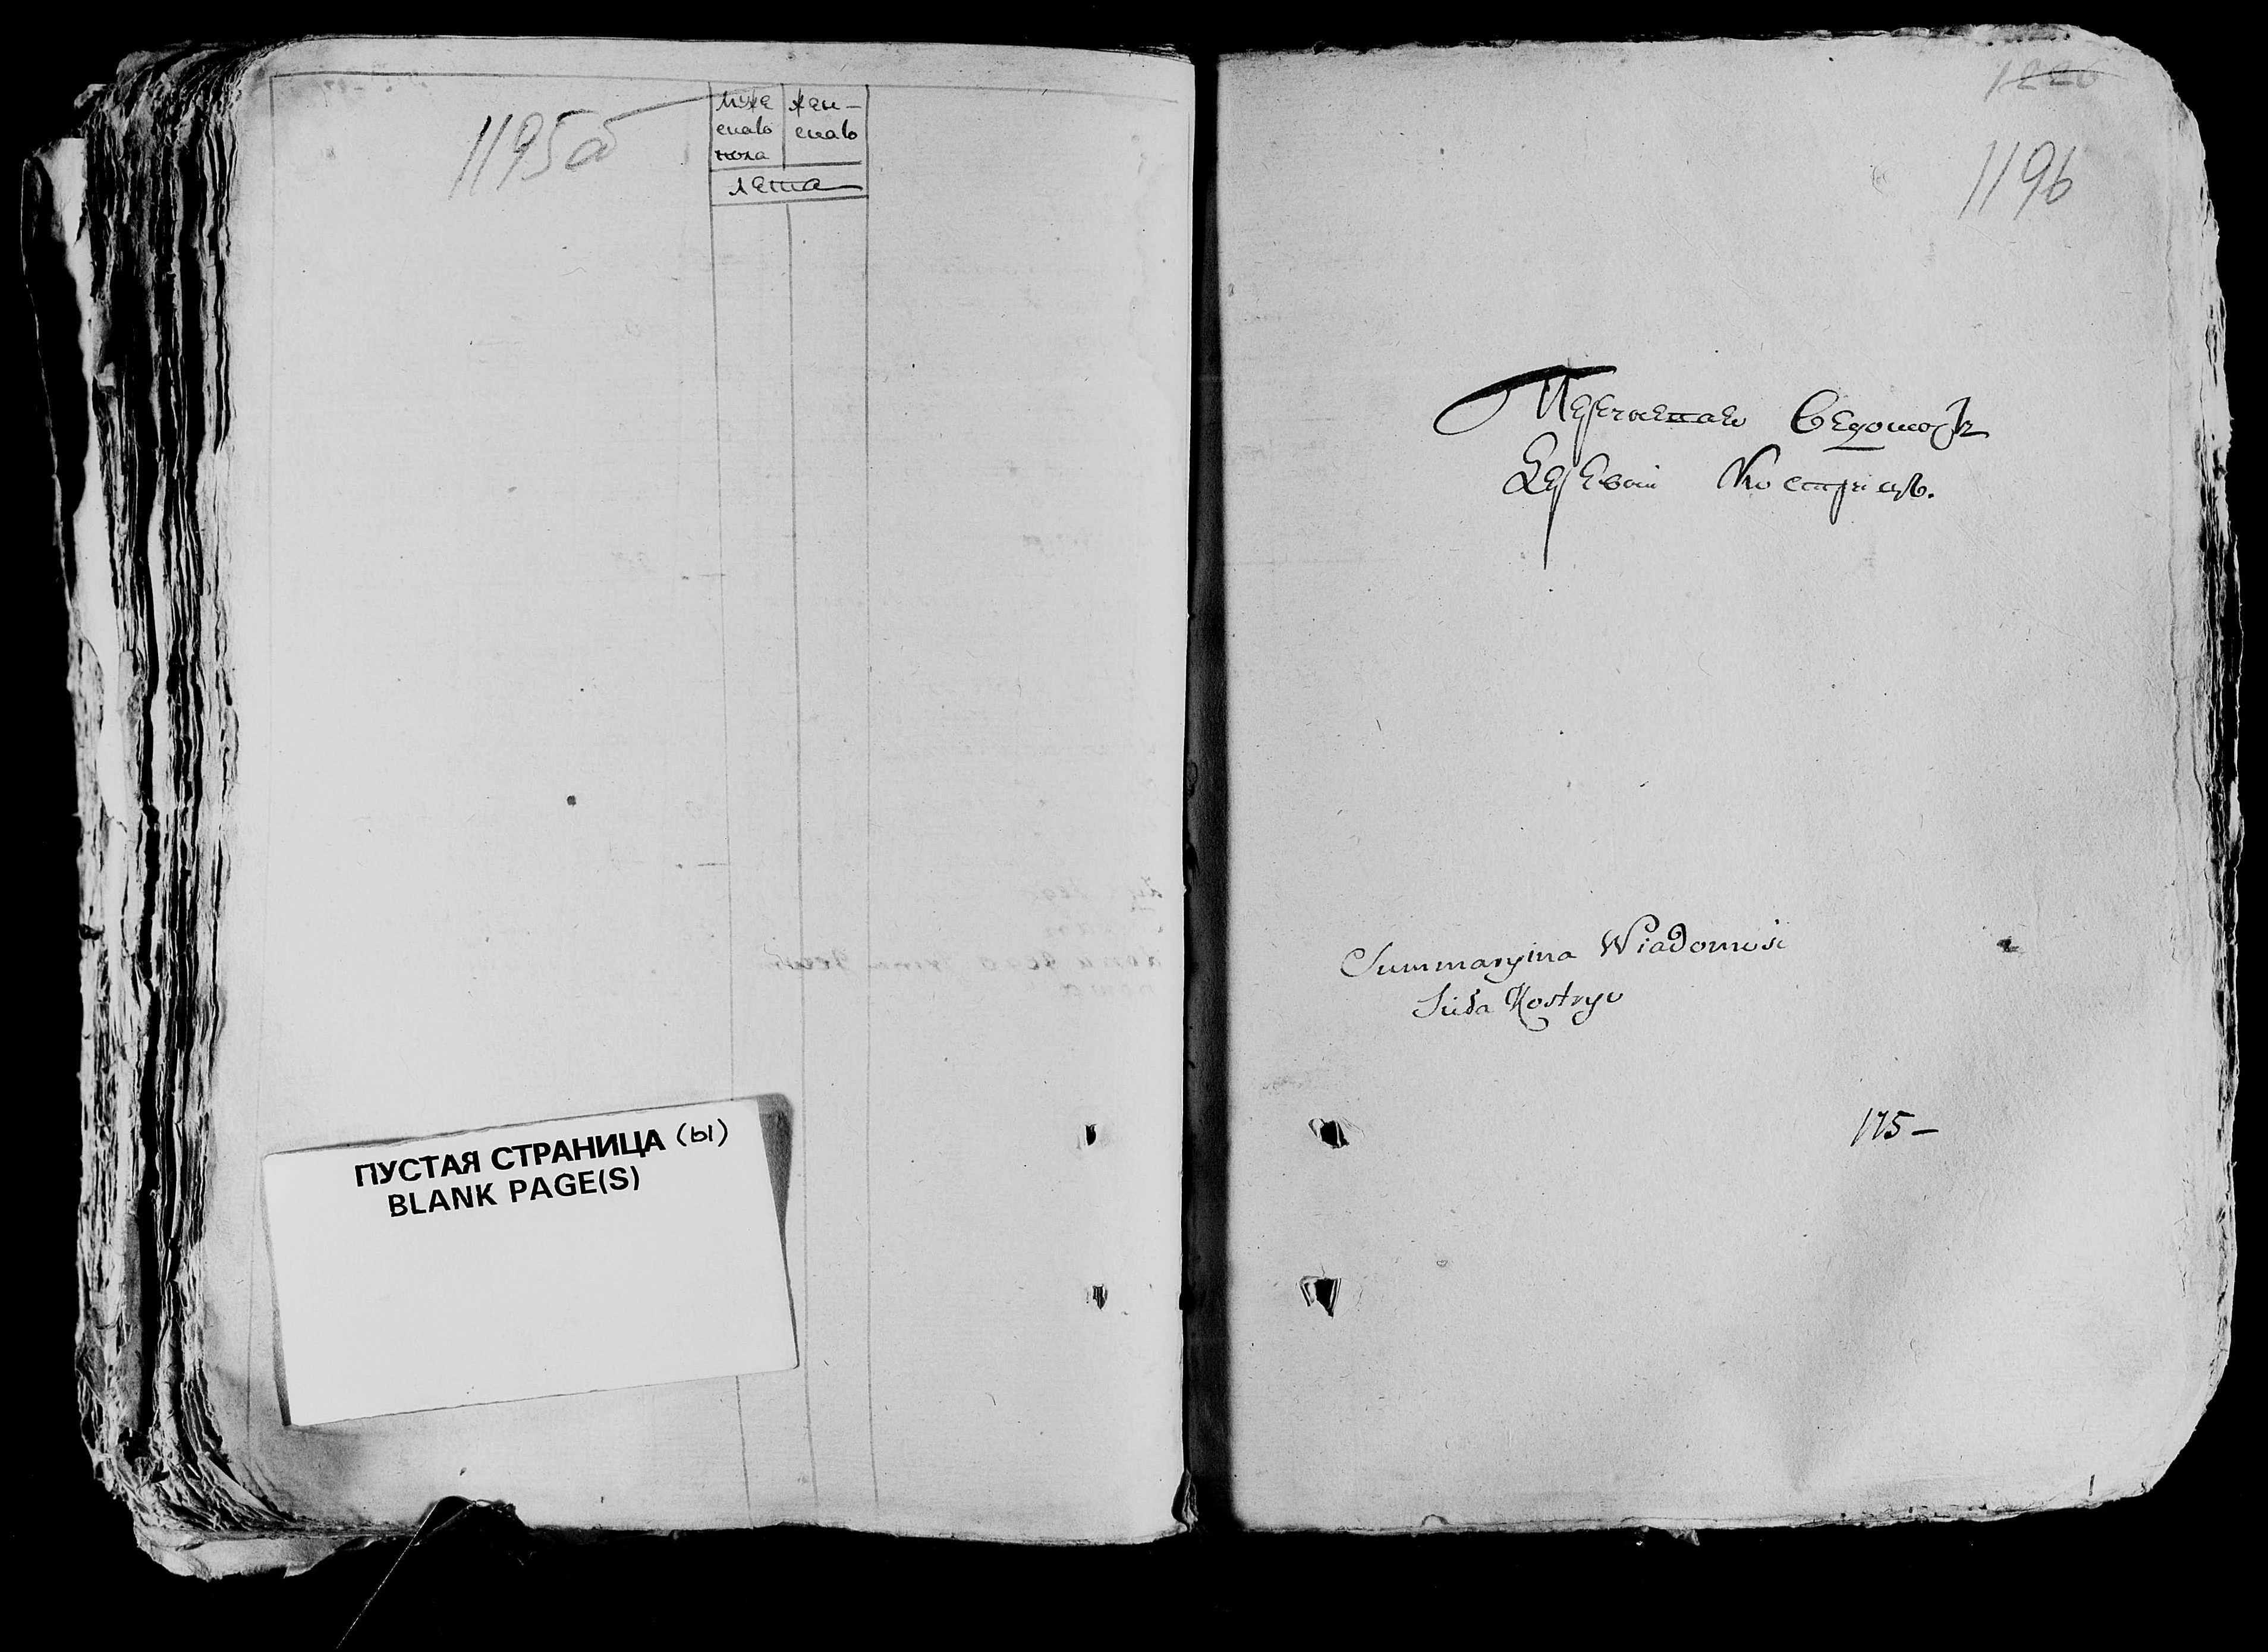 1195об
муже жен-
скаго скаго
пола
лета
ПУСТАЯ СТРАНИЦА (ы)
BLANK PAGE(S)
1226
1196
Перечневая ведомость
Деревни Кострицъ.
Summaryina Wiadomosc
Sioła Kostryc
175-